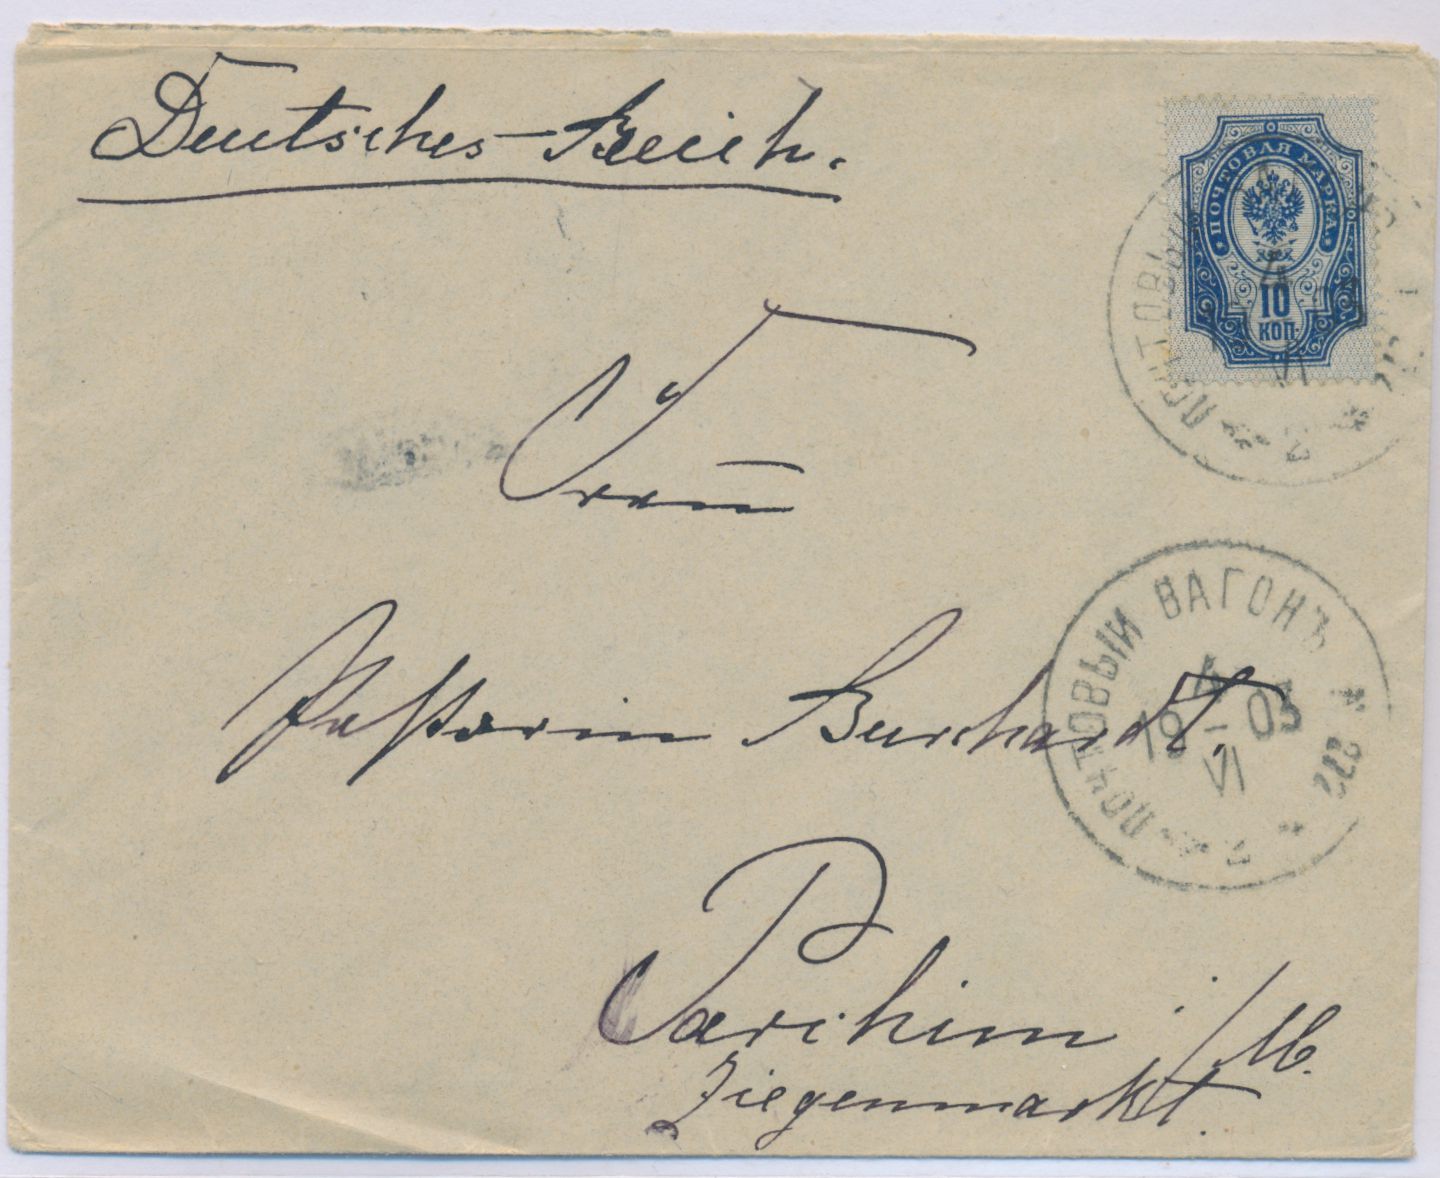 Deutsches-Reich.
ПОЧТОВАЯ МАРКА
10
КОП.
ПОЧТОВЫЙ
4
VI
Frau
Pastorin Burchardt,
ПОЧТОВЫЙ ВАГОНЪ * 222 *
4
19-03
VI
Parchim i/M.
Ziegenmarkt.